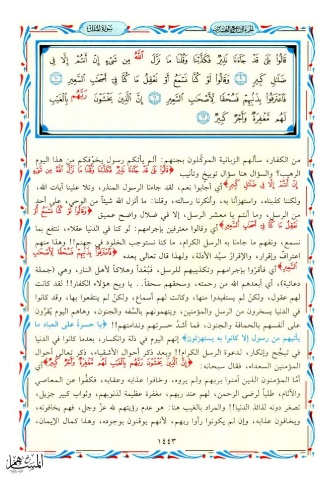 قَالُوا بَلَىٰ قَدْ جَاءَنَا نَذِيرٌ فَكَذَّبْنَا وَقُلْنَا مَا نَزَّلَ اللَّهُ مِن شَيْءٍ إِنْ أَنتُمْ إِلَّا فِي
ضَلَالٍ كَبِيرٍ ۝ وَقَالُوا لَوْ كُنَّا نَسْمَعُ أَوْ نَعْقِلُ مَا كُنَّا فِي أَصْحَابِ السَّعِيرِ ۝
فَاعْتَرَفُوا بِذَنبِهِمْ فَسُحْقًا لِّأَصْحَابِ السَّعِيرِ ۝ إِنَّ الَّذِينَ يَخْشَوْنَ رَبَّهُم بِالْغَيْبِ
لَهُم مَّغْفِرَةٌ وَأَجْرٌ كَبِيرٌ ۝
من الكفار، سألهم الزبانية الموكّلون بجهنم: ألم يأتكم رسول يخوّفكم من هذا اليوم
الرهيب؟ والسؤال هنا سؤال توبيخ وتأنيب ﴿قَالُوا بَلَىٰ قَدْ جَاءَنَا نَذِيرٌ فَكَذَّبْنَا وَقُلْنَا مَا نَزَّلَ اللَّهُ مِن شَيْءٍ
إِنْ أَنتُمْ إِلَّا فِي ضَلَالٍ كَبِيرٍ﴾ أي أجابوا نعم، لقد جاءنا الرسول المنذر، وتلا علينا آيات الله،
ولكننا كذبناه، واستهزأنا به، وأنكرنا رسالته، وقلنا: ما أنزل الله شيئاً من الوحي، على أحد
من الرسل، وما أنتم يا معشر الرسل، إلا في ضلال واضح عميق ﴿وَقَالُوا لَوْ كُنَّا نَسْمَعُ أَوْ
نَعْقِلُ مَا كُنَّا فِي أَصْحَابِ السَّعِيرِ﴾ أي وقالوا معترفين بإجرامهم: لو كنا في الدنيا عقلاء، ننتفع بما
نسمع، ونفهم ما جاءنا به الرسل الكرام، ما كنا نستوجب الخلود في جهنم!! وهذا منهم
اعتراف وإقرار، والإقرار سيّد الأدلة، ولهذا قال تعالى بعده ﴿فَاعْتَرَفُوا بِذَنبِهِمْ فَسُحْقًا لِّأَصْحَابِ
السَّعِيرِ﴾ أي فأقرّوا بإجرامهم وتكذيبهم للرسل، فبُعداً وهلاكاً لأهل النار، وهي (جملة
دعائية)، أي أبعدهم الله من رحمته، وسحقهم سحقاً.. يا ويح هؤلاء الكفار!! لقد كانت
لهم عقول، ولكنْ لم يستفيدوا منها، وكانت لهم أسماع، ولكنْ لم ينتفعوا بها، وقد كانوا
في الدنيا يسخرون من الرسل والمؤمنين، ويتهمونهم بالسفه والجنون، وهاهم اليوم يُقرّون
على أنفسهم بالحماقة والجنون، فما أشدّ حسرتهم وندامتهم!! ﴿يا حسرةً على العباد ما
يأتيهم من رسول إلا كانوا به يستهزئون﴾ إنهم اليوم في ذلة وانكسار، بعدما كانوا في الدنيا
في تبجّح وإنكار، لدعوة الرسل الكرام!! وبعد ذكر أحوال الأشقياء، ذكر تعالى أحوال
المؤمنين السعداء، فقال سبحانه: ﴿إِنَّ الَّذِينَ يَخْشَوْنَ رَبَّهُم بِالْغَيْبِ لَهُم مَّغْفِرَةٌ وَأَجْرٌ كَبِيرٌ﴾ أي
أمّا المؤمنون الذين آمنوا بربهم ولم يروه، وخافوا عذابه وعقابه، فكفّوا عن المعاصي
والآثام، طلباً لرضى الرحمن، لهم عند ربهم، مغفرة عظيمة لذنوبهم، وثواب كبير جزيل،
تصغر دونه لذائذ الدنيا!! والمراد بالغيب هنا: هو عدم رؤيتهم لله عزّ وجل، فهم يخافونه،
ويخافون عذابه، وإن لم يكونوا رأوا ربهم، لأنهم يوقنون بوجوده، وهذا كمال الإيمان،
١٤٤٣